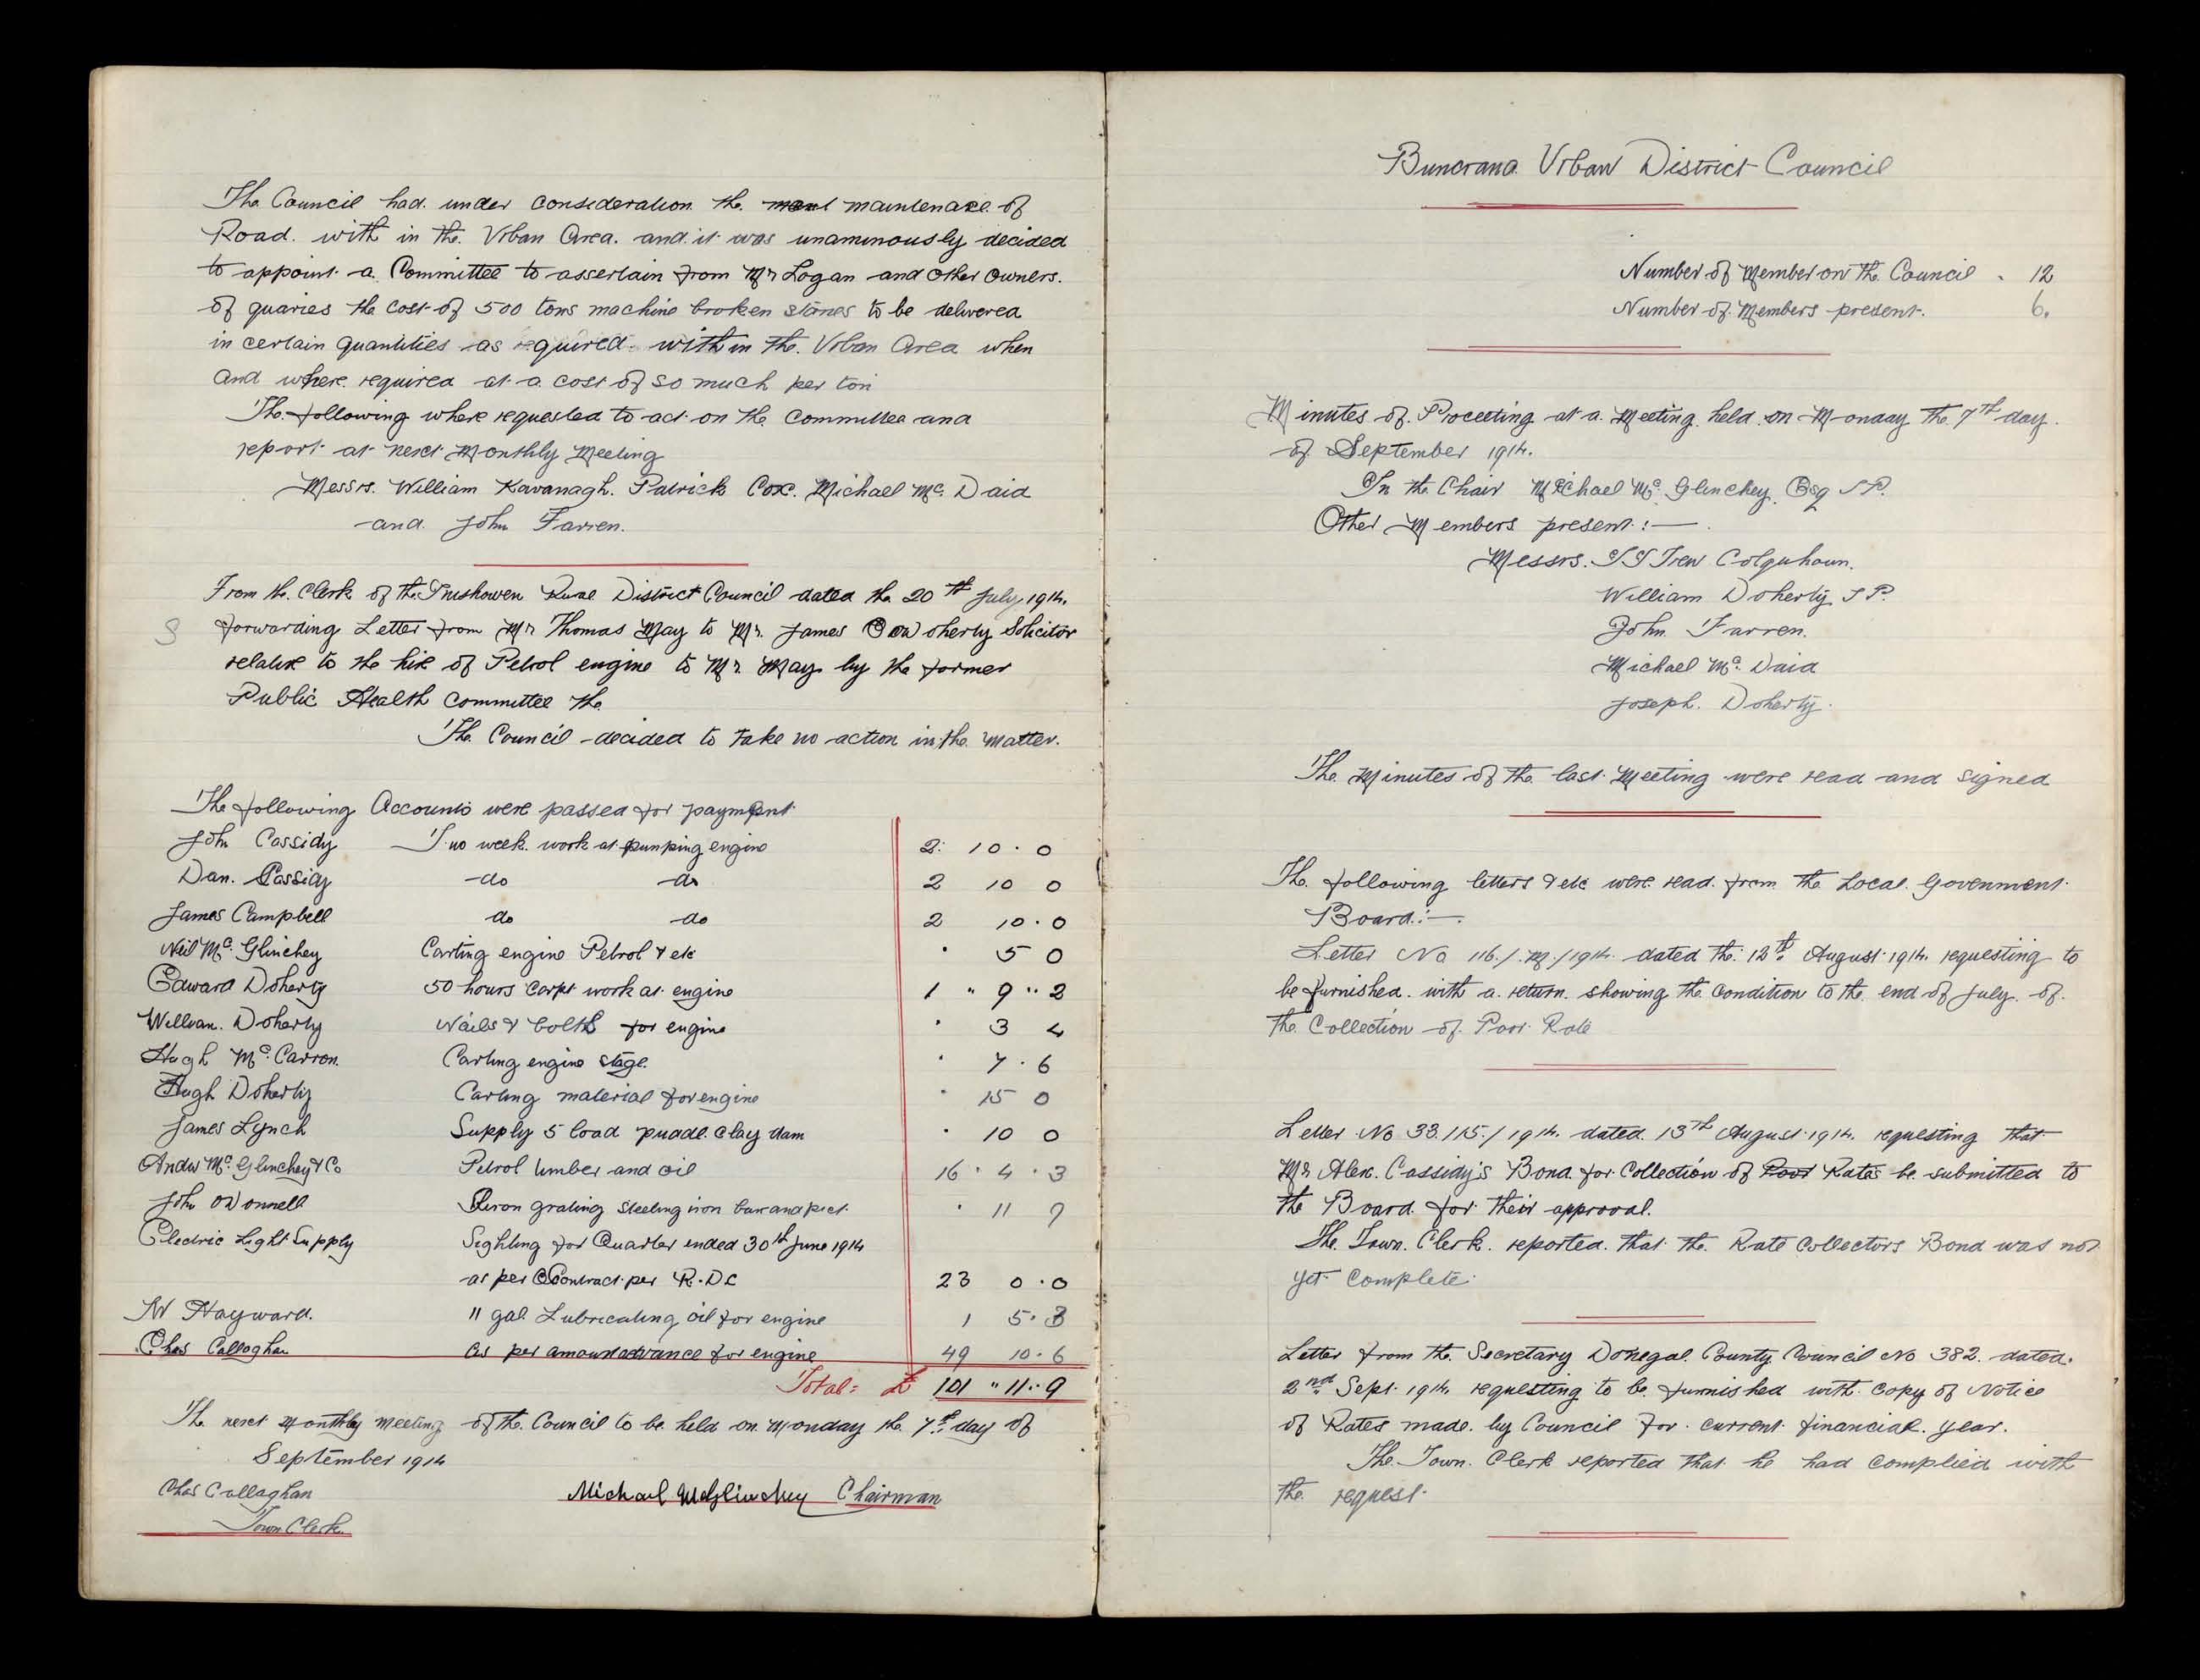 The Council had under consideration the maintenace of
Road with in the Urban Area. and it was unaminously decided
to appoint a Committee to assertain from Mr Logan and other owners.
of quaries the cost of 500 tons machine broken stones to be delivered
in certain quantities as required with in the Urban Area when
and where required at a cost of so much per ton
The following where requested to act on the Committee and
report at next Monthly Meeting
Messrs. William Kavanagh. Patrick Cox. Michael Mc Daid
and John Farren.
From the Clerk of the Inishowen Rural District Council dated the 20th July, 1914.
forwarding Letter from Mr Thomas May to Mr. James Dowherty Solicitor
relative to the hire of Petrol engine to Mr. May by the former
Public Health Committee the
The Council decided to take no action in the matter.
The following Accounts were passed for payment
John Cassidy Two week work at pumping engine 2: 10 . 0
Dan. Cassidy do do 2 10 0
James Campbell do do 2 10 . 0
Neil Mc Glinchey Carting engine Petrol & etc . 5 0
Edward Doherty 50 hours Carpt work at engine 1 " 9 " 2
William Doherty Nails & bolts for engine . 3 4
Hugh Mc Carron. Carting engine stage. . 7 . 6
Hugh Doherty Carting material for engine . 15 0
James Lynch Supply 5 load puddl clay dam . 10 0
Andw Mc Glinchey & Co Petrol timber and oil 16 . 4 . 3
John O'Donnell Iron grating steeling iron bar and pict . 11 9
Electric Light Supply Lighting for Quarter ended 30th June 1914
as per Contract per R.D C 23 0 . 0
W Hayward. 11 gal Lubricating oil for engine 1 5 . 3
Chas Callaghan as per amount advance for engine 49 10 . 6
Total = £ 101 " 11 " 9
The next Monthly Meeting of the Council to be held on Monday the 7th day of
September 1914
Chas Callaghan Michael McGlinchey Chairman
Town Clerk
Buncrana Urban District Council
Number of Member on the Council . 12
Number of Members present. 6.
Minutes of Proceeting at a Meeting held on Monday the 7th day
of September 1914.
In the Chair Michael Mc Glinchey Esq J P.
Other Members present :—
Messrs. T J Trew Colquhoun.
William Doherty J P.
John Farren.
Michael Mc Daid
Joseph. Doherty.
The Minutes of the last Meeting were read and signed
The following letters & etc were read from the Local Govenment
Board :—
Letter No 116 / M / 1914 dated the 12th August 1914. requesting to
be furnished with a return showing the condition to the end of July of
the Collection of Poor Rate
Letter No 33.115 / 1914. dated 13th August 1914. requesting that
Mr Alex. Cassidy's Bond for Collection of Poor Rates be submitted to
the Board for their approval.
The Town Clerk reported that the Rate Collectors Bond was not
yet complete
Letter from the Secretary Donegal County Council No 382 dated
2nd Sept 1914 requesting to be furnished with copy of Notice
of Rates made by Council for current financial year.
The Town Clerk reported that he had complied with
the request.